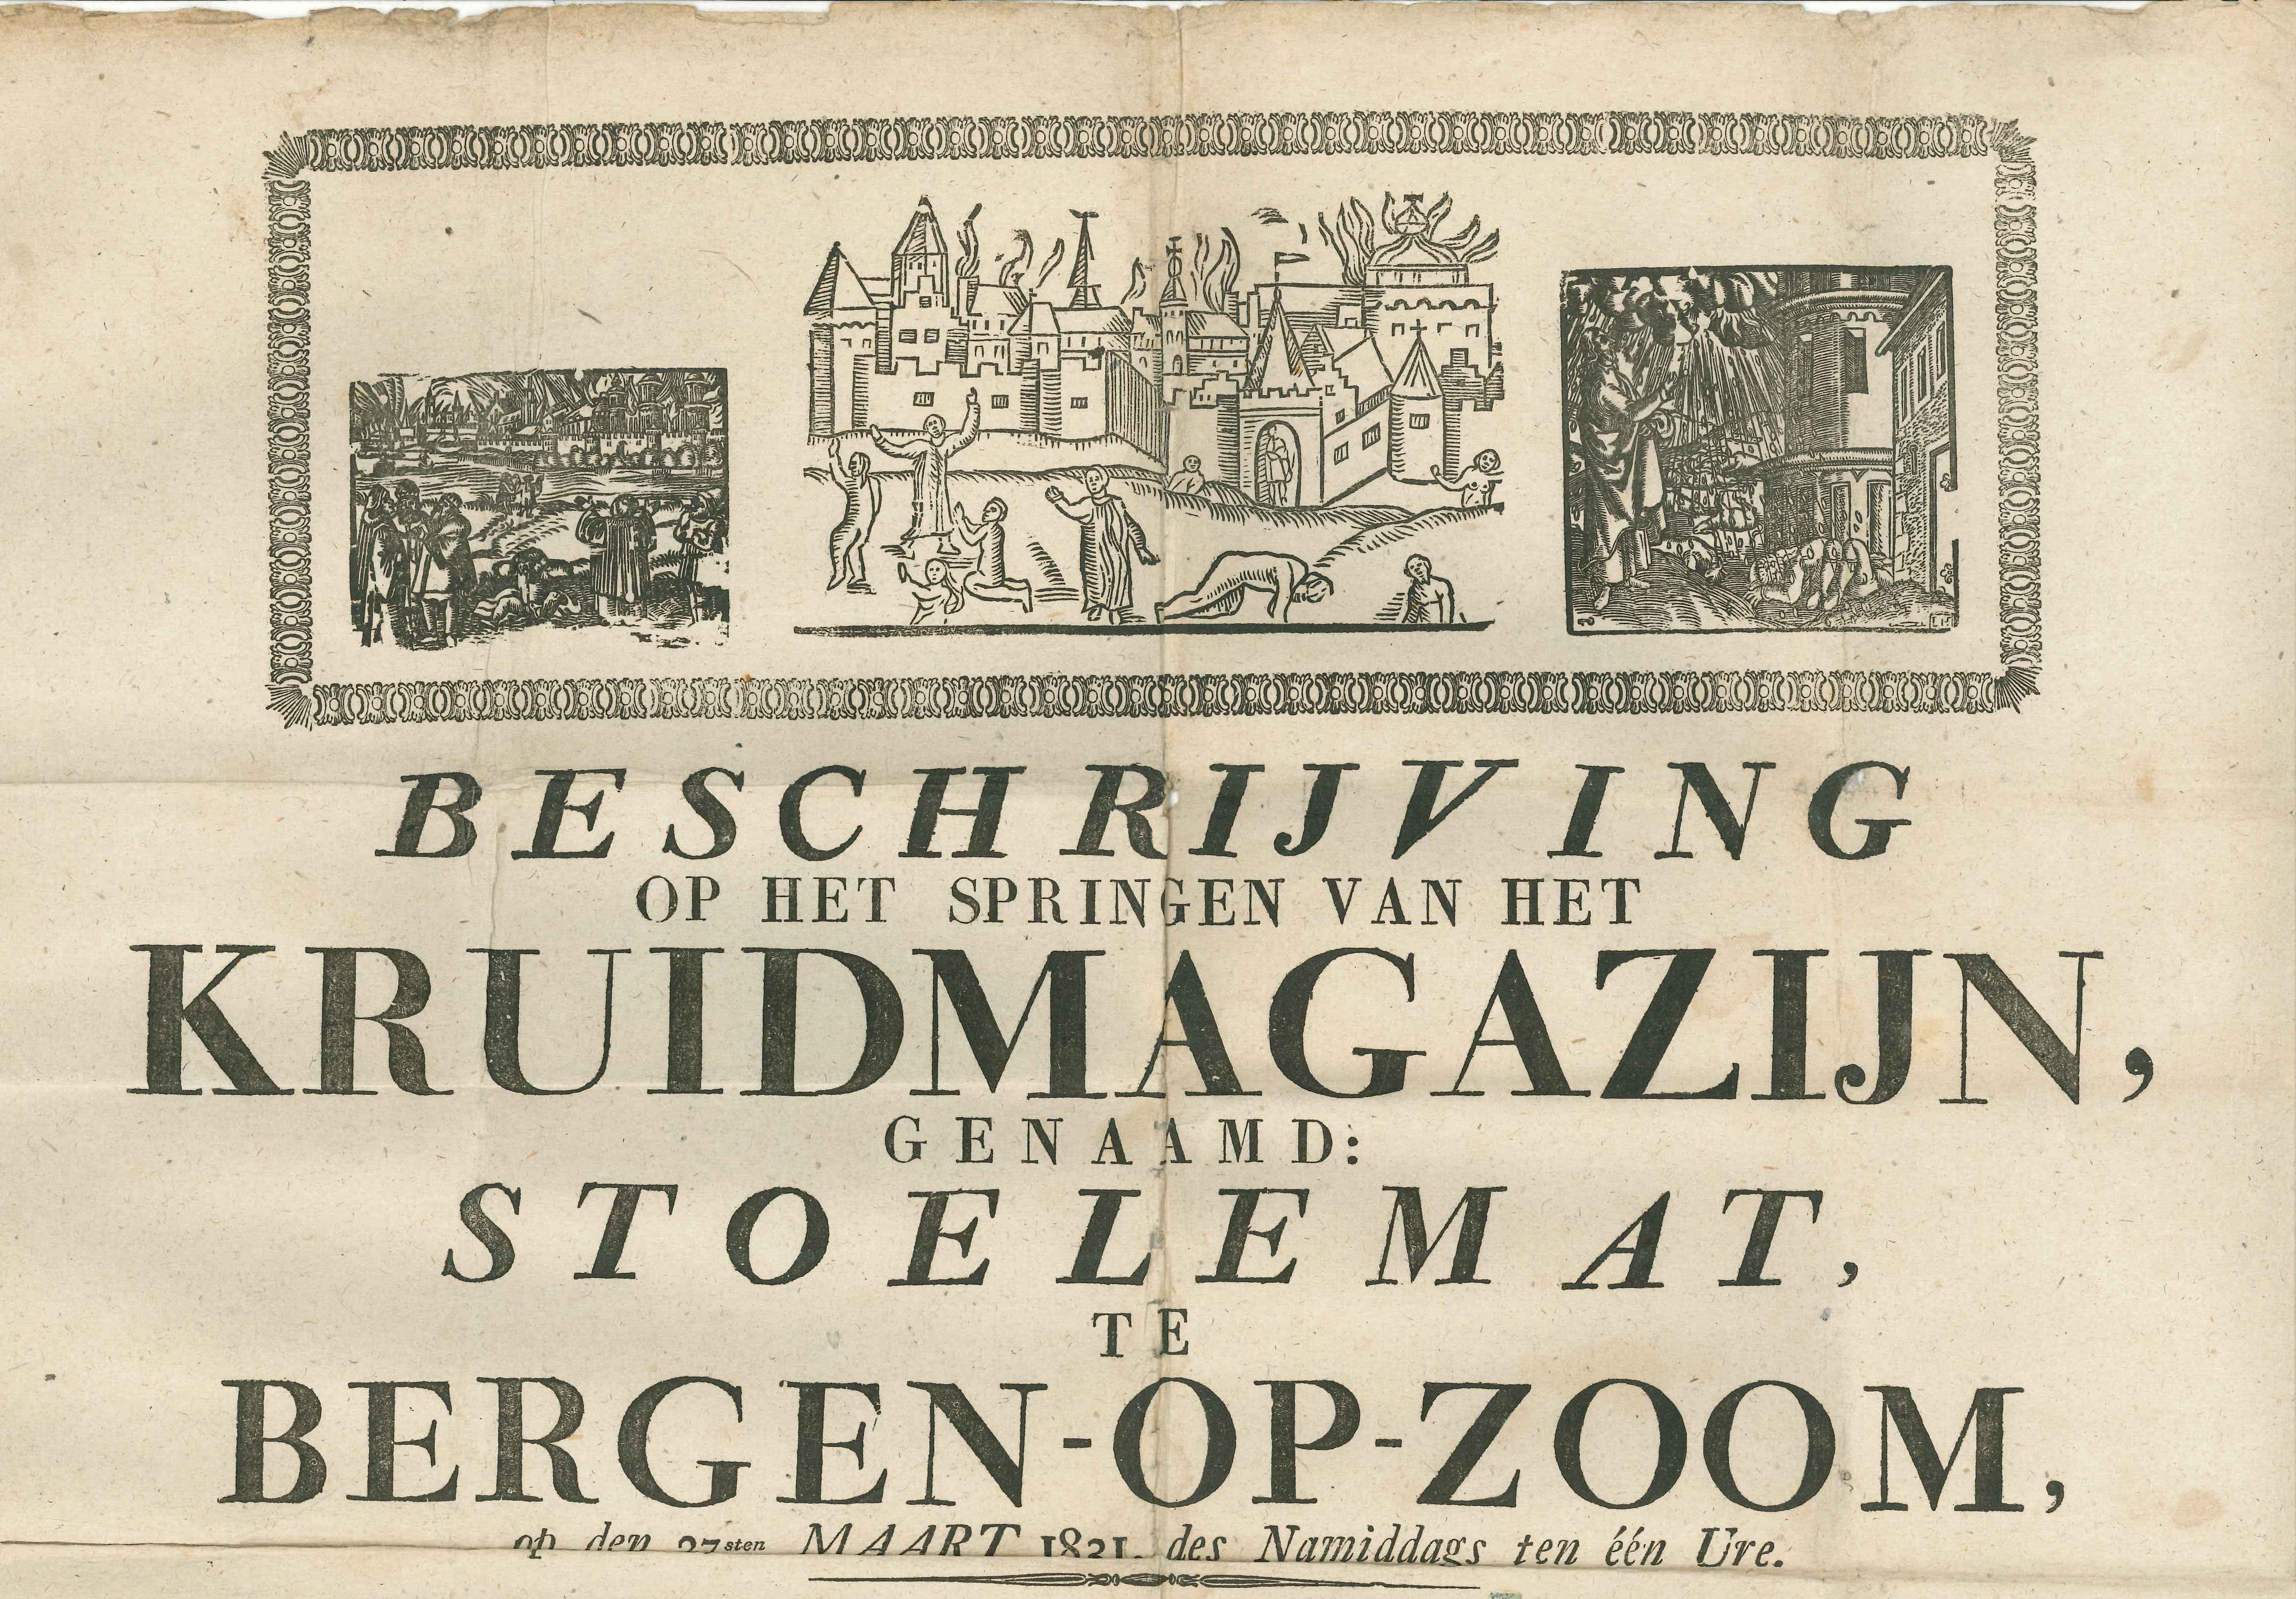 BESCHRIJVING
OP HET SPRINGEN VAN HET
KRUIDMAGAZIJN,
GENAAMD:
STOELEMAT,
TE
BERGEN-OP-ZOOM,
op den 27sten MAART 1831. des Namiddags ten één Ure.